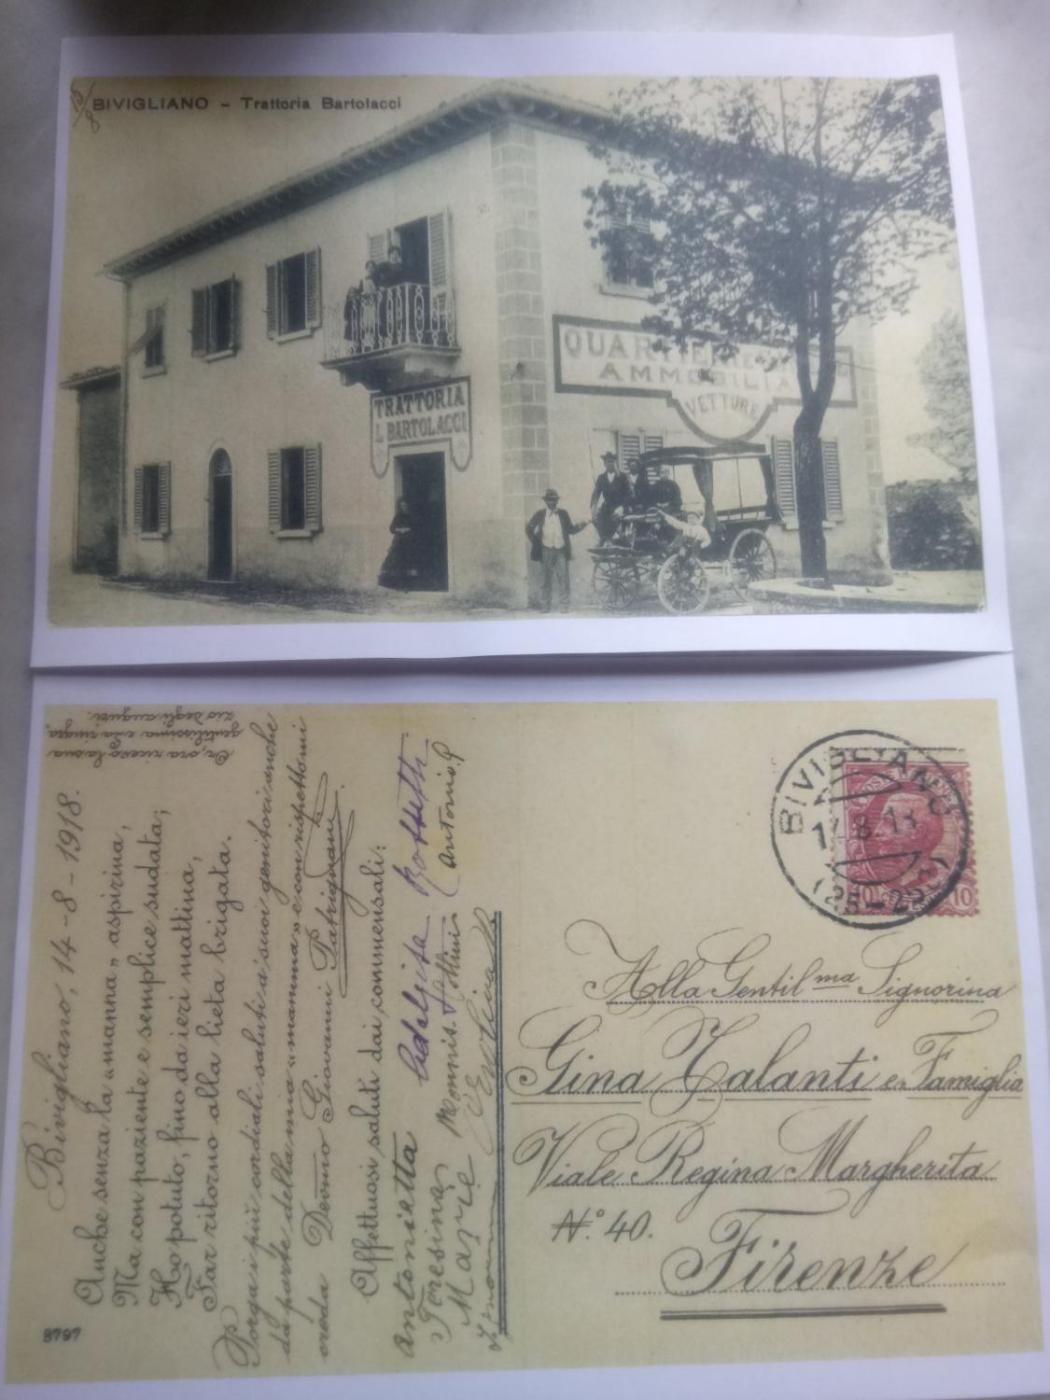 BIVIGLIANO – Trattoria Bartolacci
TRATTORIA
L. BARTOLACCI
QUARTIERE
AMMOBILIA
VETTURE
Bivigliano, 14-8-1918.
Anche senza la «manna» aspirina,
Ma con paziente e semplice sudata;
Ho potuto, fino da ieri mattina,
Far ritorno alla lieta brigata.
Porga i più cordiali saluti ai suoi genitori anche
da parte della mia «mamma» e con rispetto mi
creda Devmo Giovanni Patrignani
Affettuosi saluti dai commensali:
Antonietta Adalgisa
Teresina
Marie
Or, ora ricevo la sua
gentilissima e la ringra,
zio degli auguri.
8797
BIVIGLIANO
Alla Gentil.ma Signorina
Gina Talanti e Famiglia
Viale Regina Margherita
N.° 40.
Firenze
10